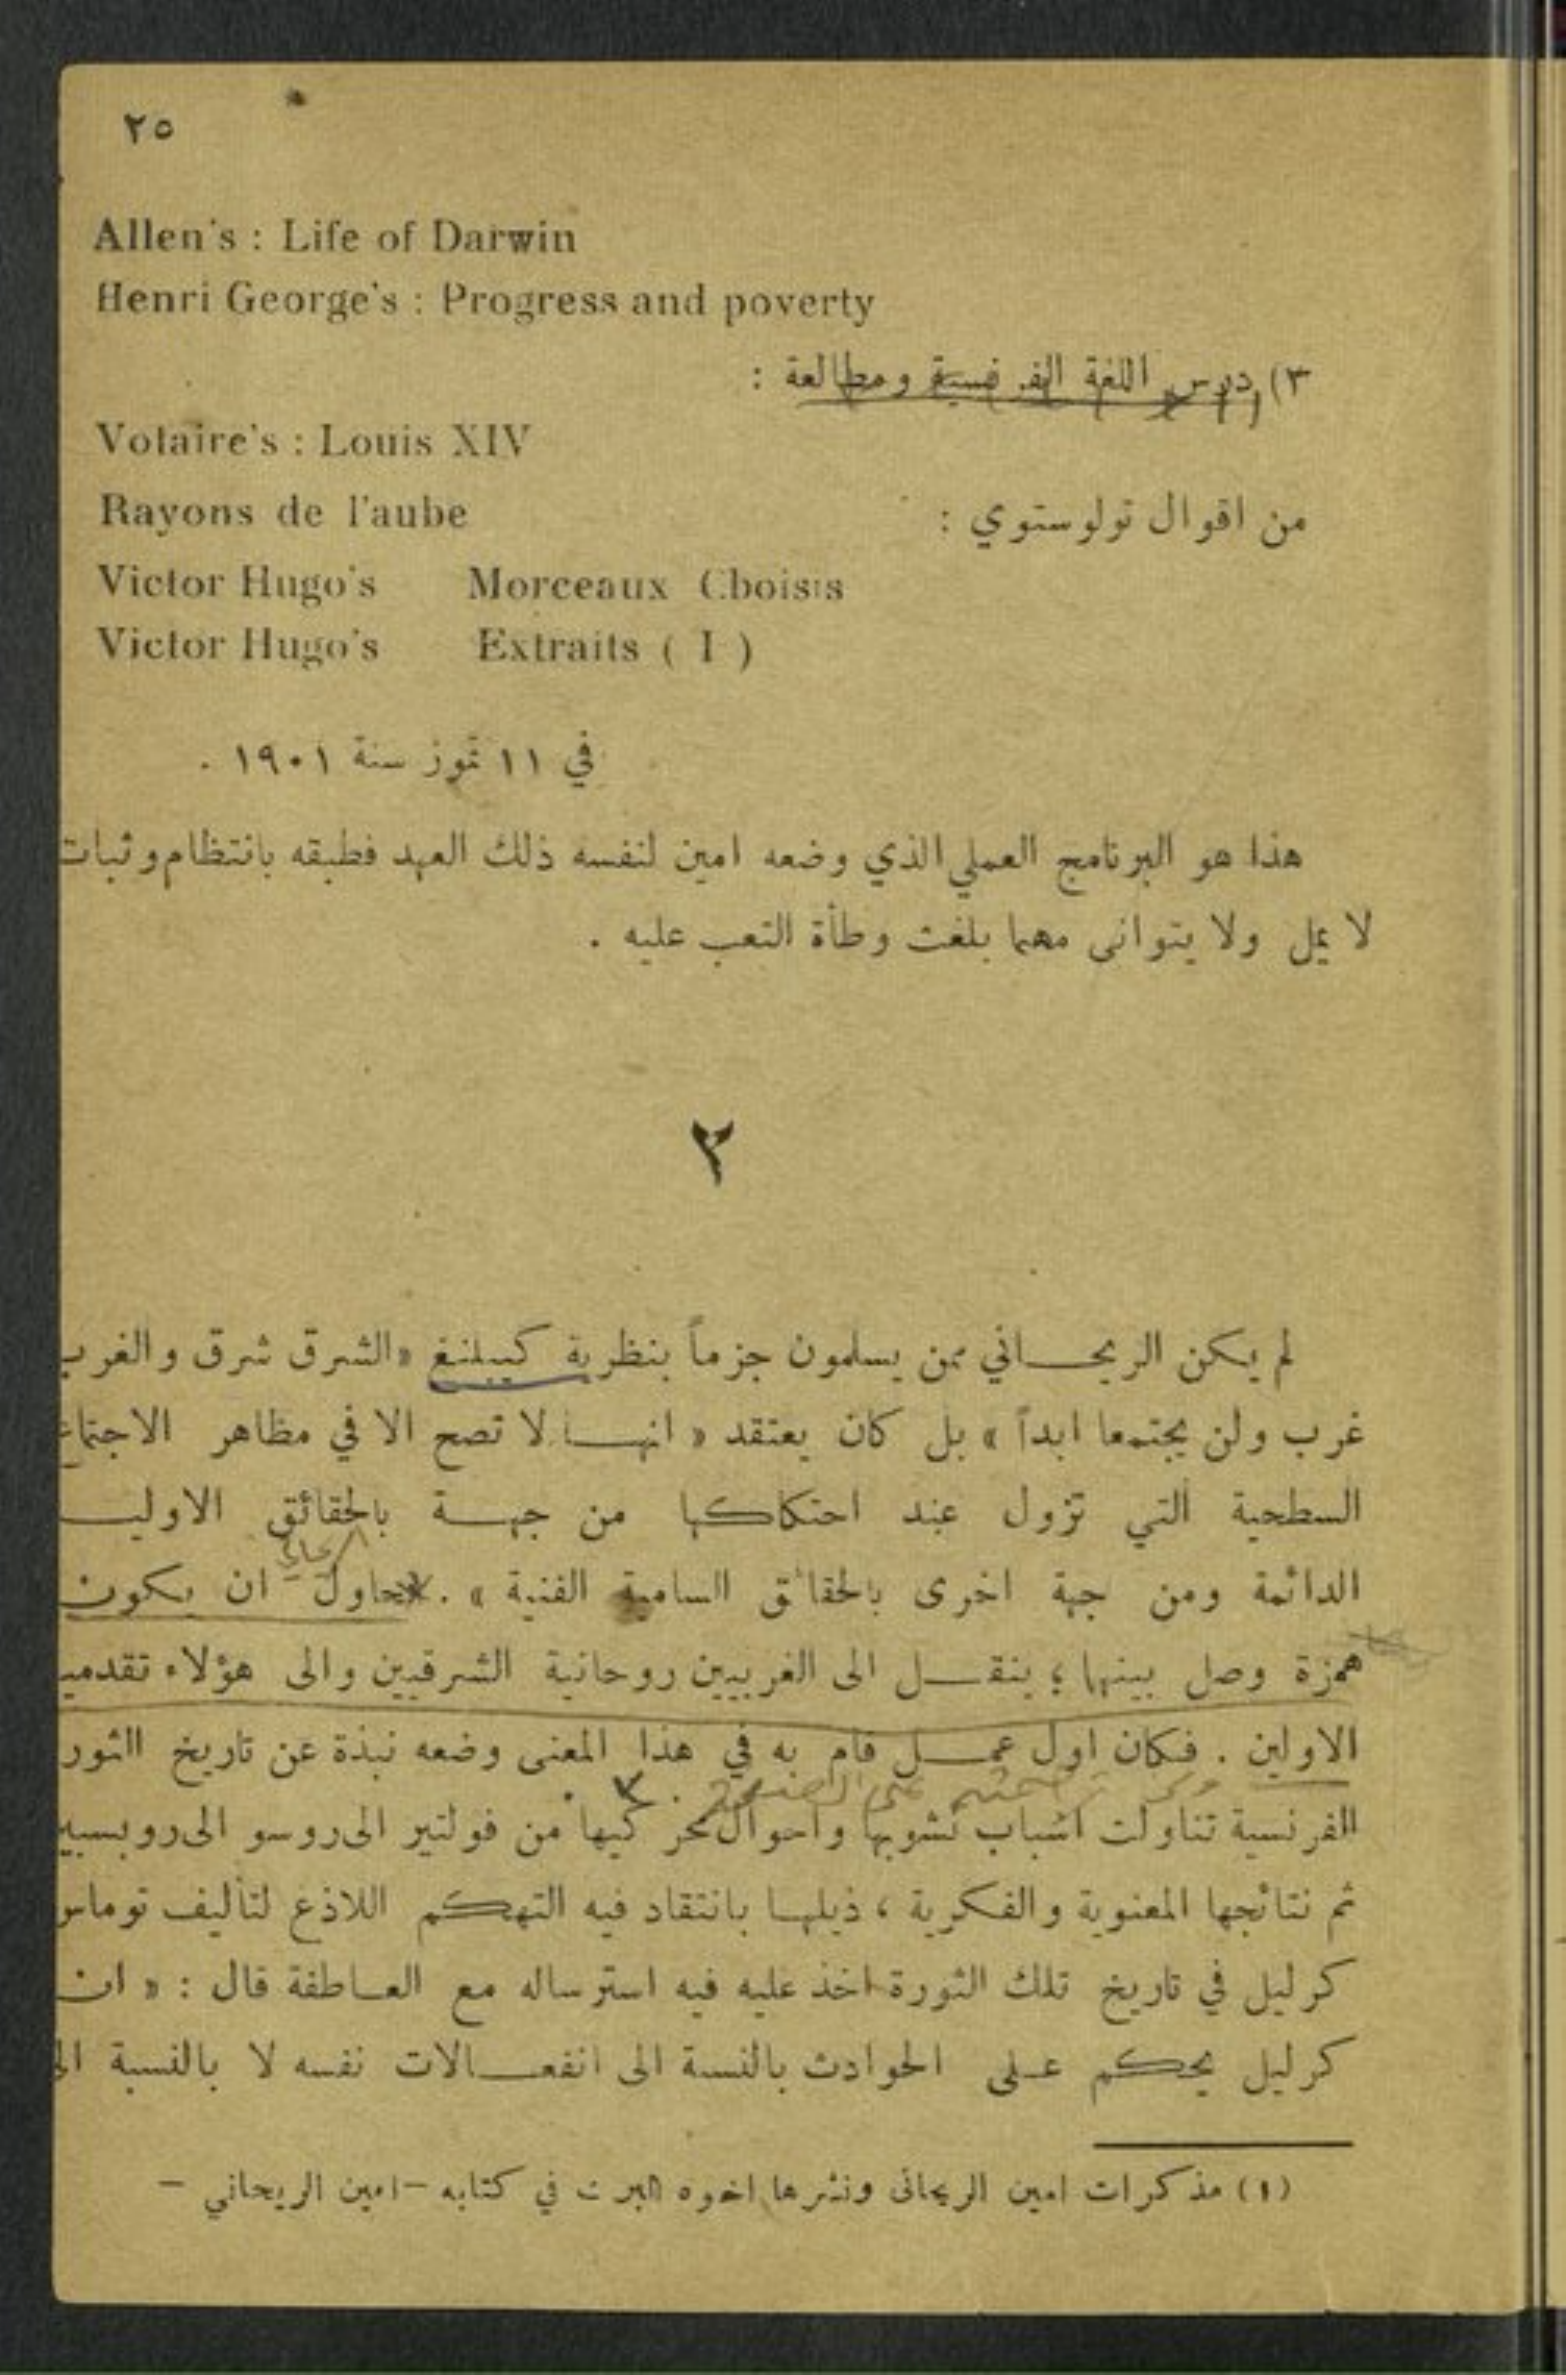 ٢٥
Allen's : Life of Darwin
Henri George's : Progress and poverty
٣) درس اللغة الفرنسية ومطالعة :
Votaire's : Louis XIV
من اقوال تولوستوي : Rayons de l'aube
Victor Hugo's Morceaux Choisis
Victor Hugo's Extraits ( I )
في ١١ تموز سنة ١٩٠١ .
هذا هو البرنامج العملي الذي وضعه امين لنفسه ذلك العهد فطبقه بانتظام وثبات
لا يمل ولا يتوانى مهما بلغت وطأة التعب عليه .
٢
لم يكن الريحاني ممن يسلمون جزماً بنظرية كيبلنغ «الشرق شرق والغرب
غرب ولن يجتمعا ابداً » بل كان يعتقد « انها لا تصح الا في مظاهر الاجتماع
السطحية التي تزول عند احتكاكها من جهة بالحقائق الاوليـ
الدائمة ومن جهة اخرى بالحقائق السامية الفنية » . حاول ان يكون
همزة وصل بينهما ؛ ينقل الى الغربيين روحانية الشرقيين والى هؤلاء تقدميـ
الاولين . فكان اول عمل قام به في هذا المعنى وضعه نبذة عن تاريخ الثور
الفرنسية تناولت اسباب نشوبها واحوال محركيها من فولتير الى روسو الى روبسبيير
ثم نتائجها المعنوية والفكرية ، ذيلها بانتقاد فيه التهكم اللاذع لتأليف توماس
كرليل في تاريخ تلك الثورة اخذ عليه فيه استرساله مع العاطفة قال : « ان
كرليل يحكم على الحوادث بالنسبة الى انفعالات نفسه لا بالنسبة الى
(١) مذكرات امين الريحاني ونشرها اخوه البرت في كتابه – امين الريحاني –